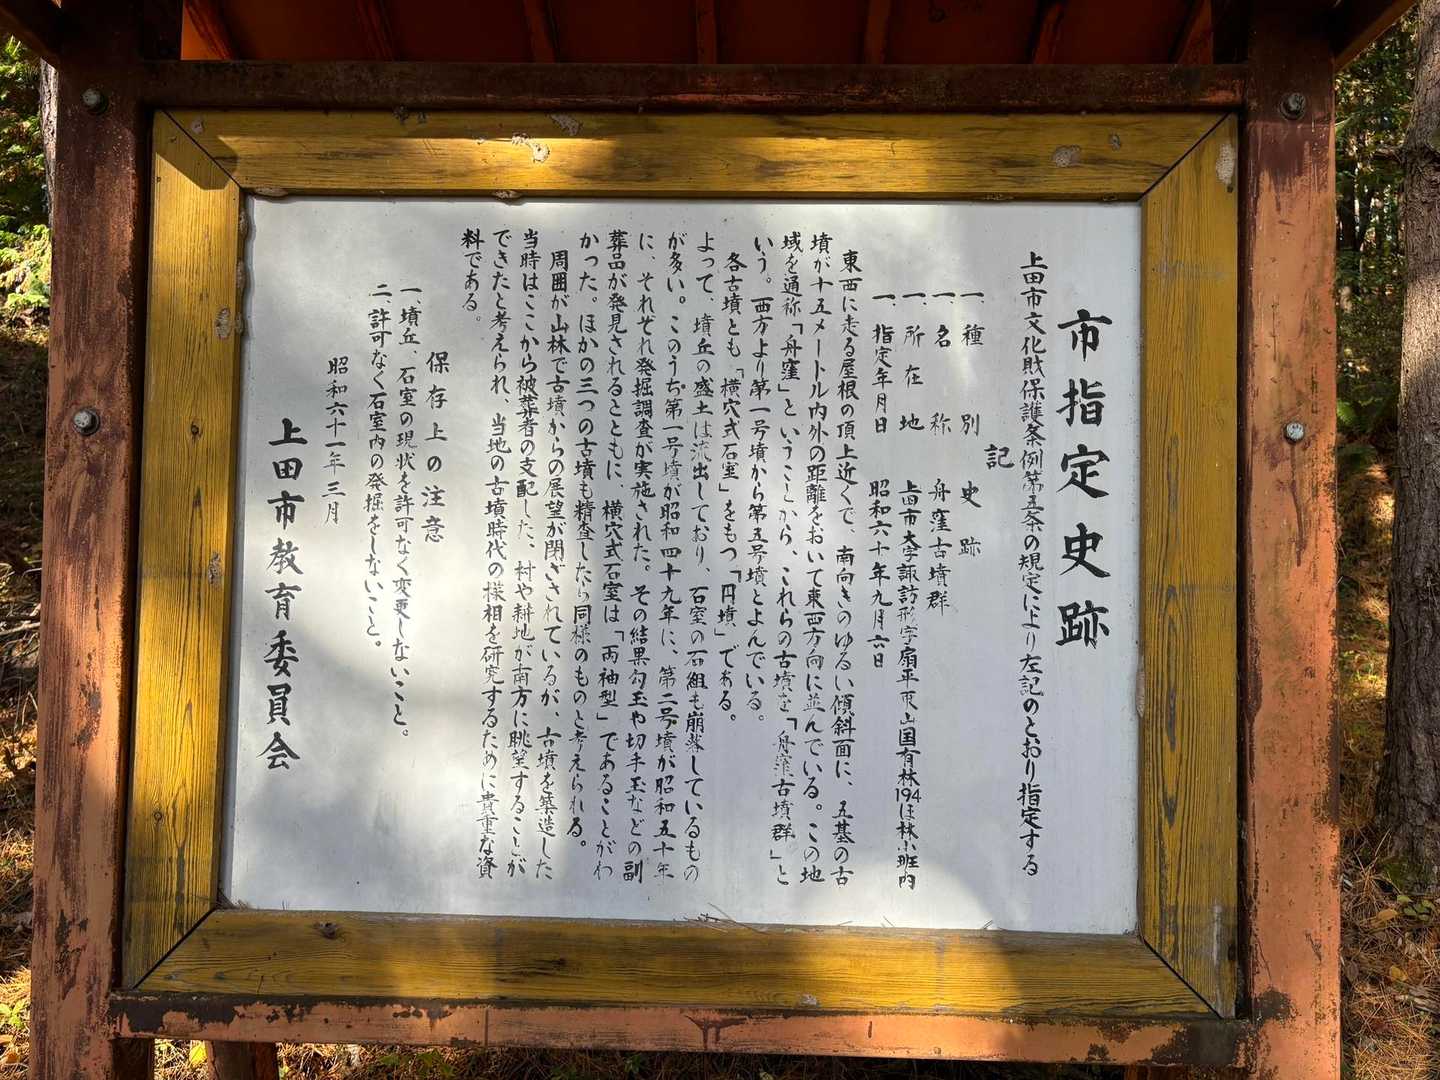 市指定史跡
上田市文化財保護条例第五条の規定により左記のとおり指定する
記
一、種別 史跡
一、名称 舟窪古墳群
一、所在地 上田市大字諏訪形字扇平東山国有林194ほ林小班内
一、指定年月日 昭和六十年九月六日
東西に走る屋根の頂上近くで、南向きのゆるい傾斜面に、五基の古
墳が十五メートル内外の距離をおいて東西方向に並んでいる。この地
域を通称「舟窪」ということから、これらの古墳を「舟窪古墳群」と
いう。西方より第一号墳から第五号墳とよんでいる。
各古墳とも「横穴式石室」をもつ「円墳」である。
よって、墳丘の盛土は流出しており、石室の石組も崩落しているもの
が多い。このうち第一号墳が昭和四十九年に、第二号墳が昭和五十年
に、それぞれ発掘調査が実施された。その結果勾玉や切子玉などの副
葬品が発見されるとともに、横穴式石室は「両袖型」であることがわ
かった。ほかの三つの古墳も精査したら同様のものと考えられる。
周囲が山林で古墳からの展望が閉ざされているが、古墳を築造した
当時はここから被葬者の支配した、村や耕地が南方に眺望することが
できたと考えられ、当地の古墳時代の様相を研究するために貴重な資
料である。
保存上の注意
一、墳丘、石室の現状を許可なく変更しないこと。
二、許可なく石室内の発掘をしないこと。
昭和六十一年三月
上田市教育委員会